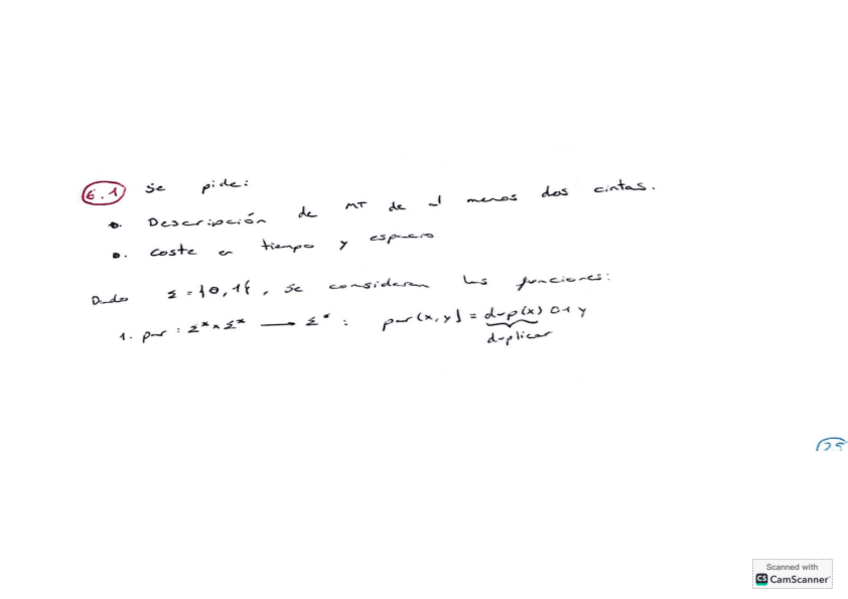 6.1 Se pide:
Descripción de MT de al menos dos cintas.
Coste en tiempo y espacio
Dado Σ = {0,1}, se consideran las funciones:
1. par : Σ* × Σ* → Σ* : par(x,y) = dup(x) 01 y
duplicar
25
Scanned with
CS CamScanner